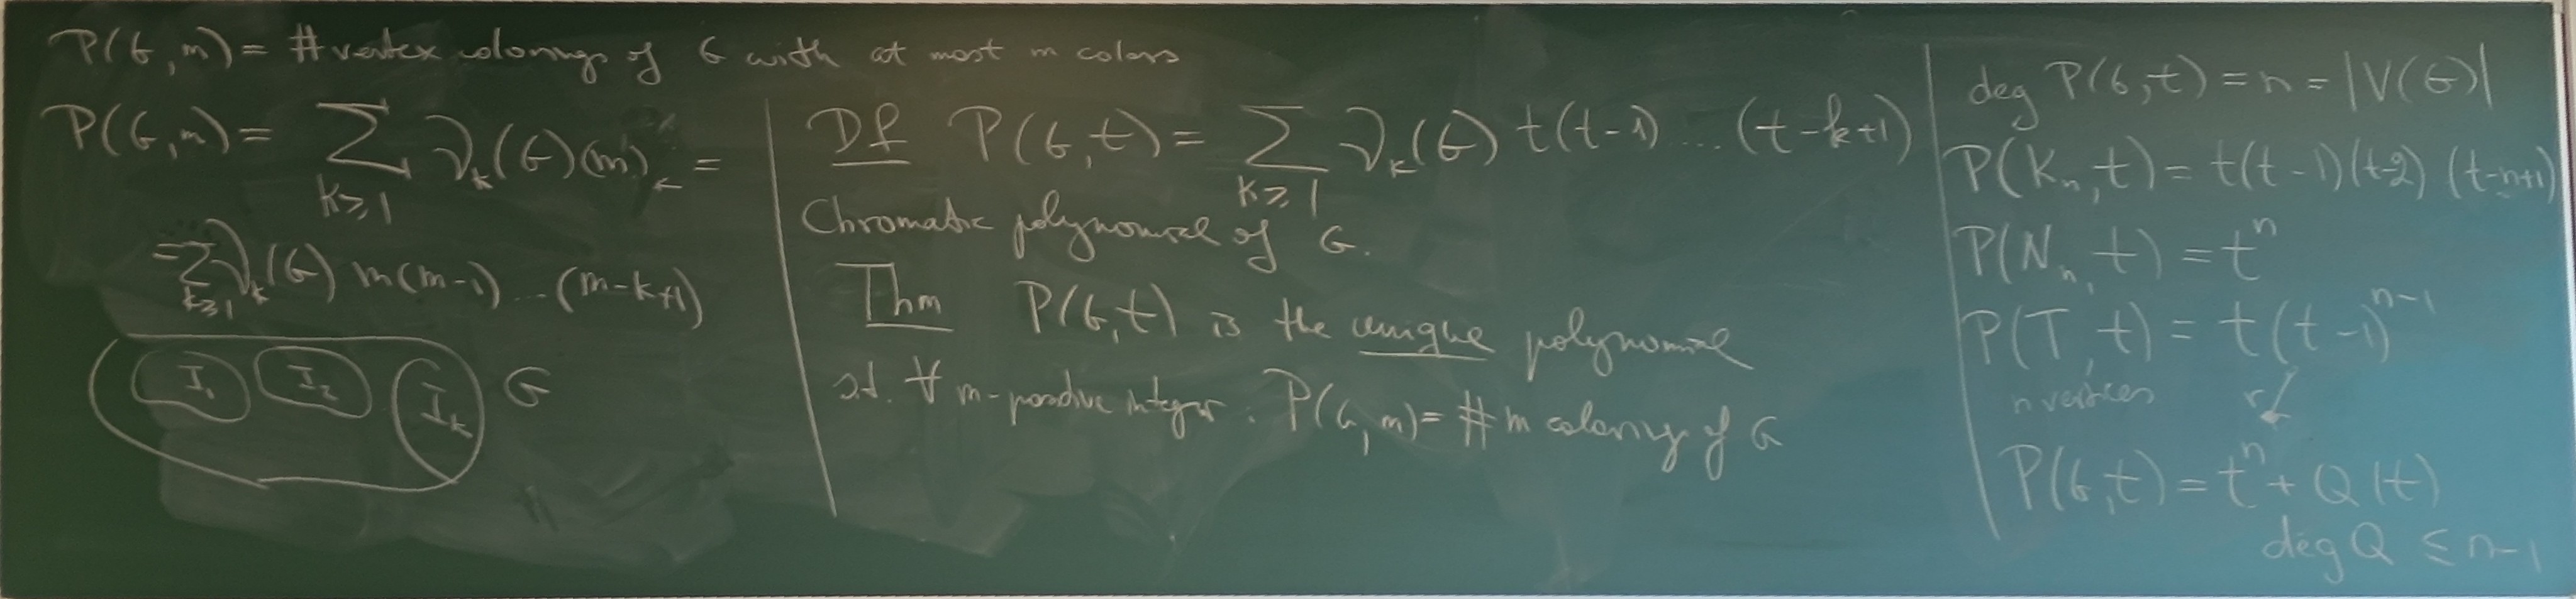 P(G,m) = # vertex colorings of G with at most m colors
P(G,m) = ∑_{k≥1} ν_k(G)(m)_k =
= ∑_{k≥1} ν_k(G) m(m-1)...(m-k+1)
I_1 I_2 I_k G
Df P(G,t) = ∑_{k≥1} ν_k(G) t(t-1)...(t-k+1)
Chromatic polynomial of G.
Thm P(G,t) is the unique polynomial
s.t. ∀ m-positive integer: P(G,m) = # m coloring of G
deg P(G,t) = n = |V(G)|
P(K_n,t) = t(t-1)(t-2) (t-n+1)
P(N_n,t) = t^n
P(T,t) = t(t-1)^{n-1}
n vertices
P(G,t) = t^n + Q(t)
deg Q ≤ n-1